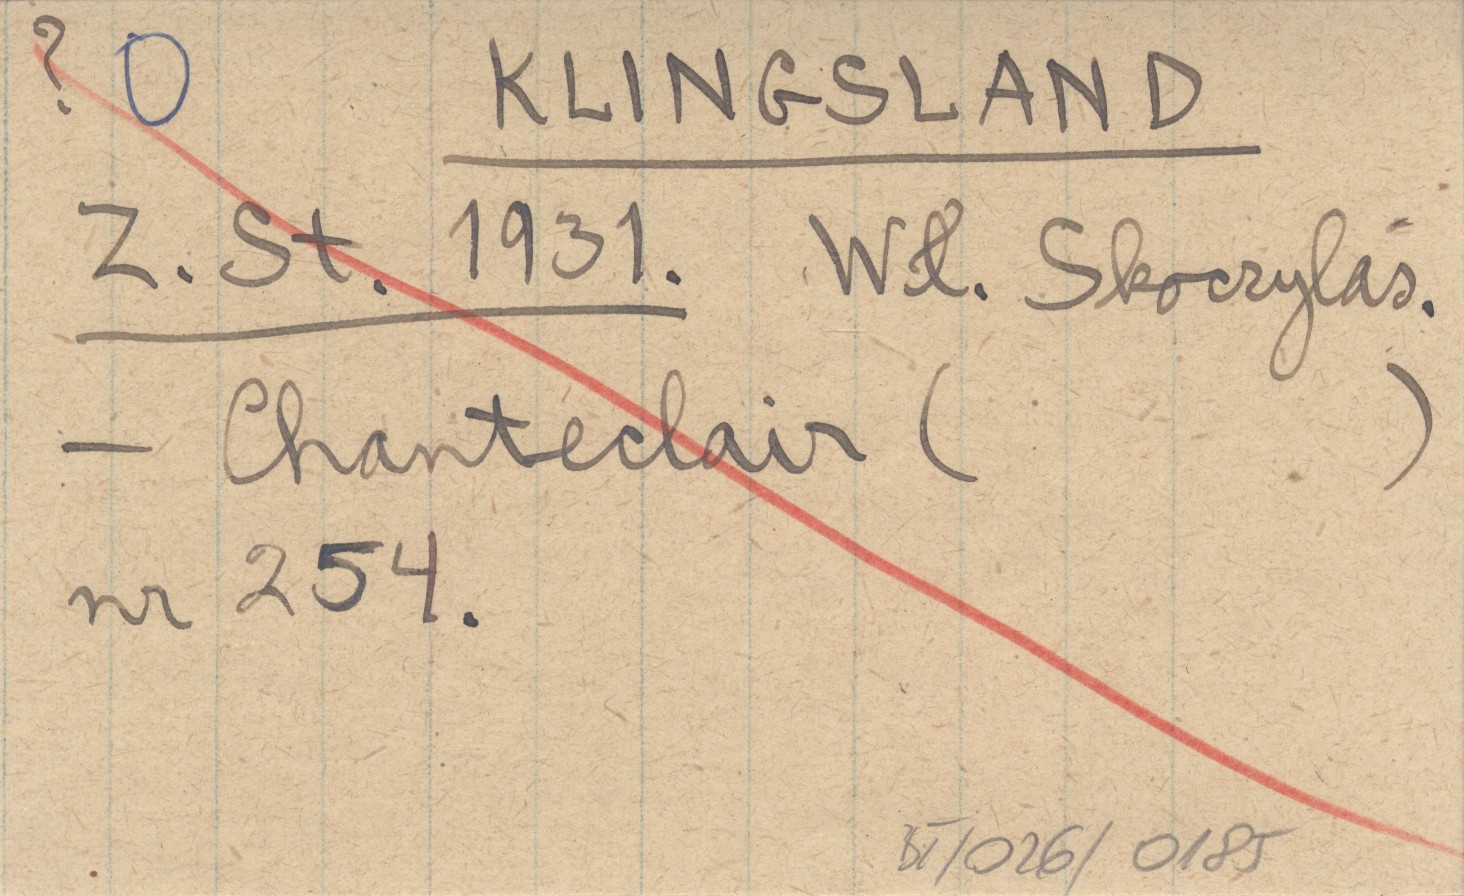 ? O KLINGSLAND
Z. St. 1931. Wł. Skoczylas.
— Chanteclair ( )
nr 254.
/026/ 0185